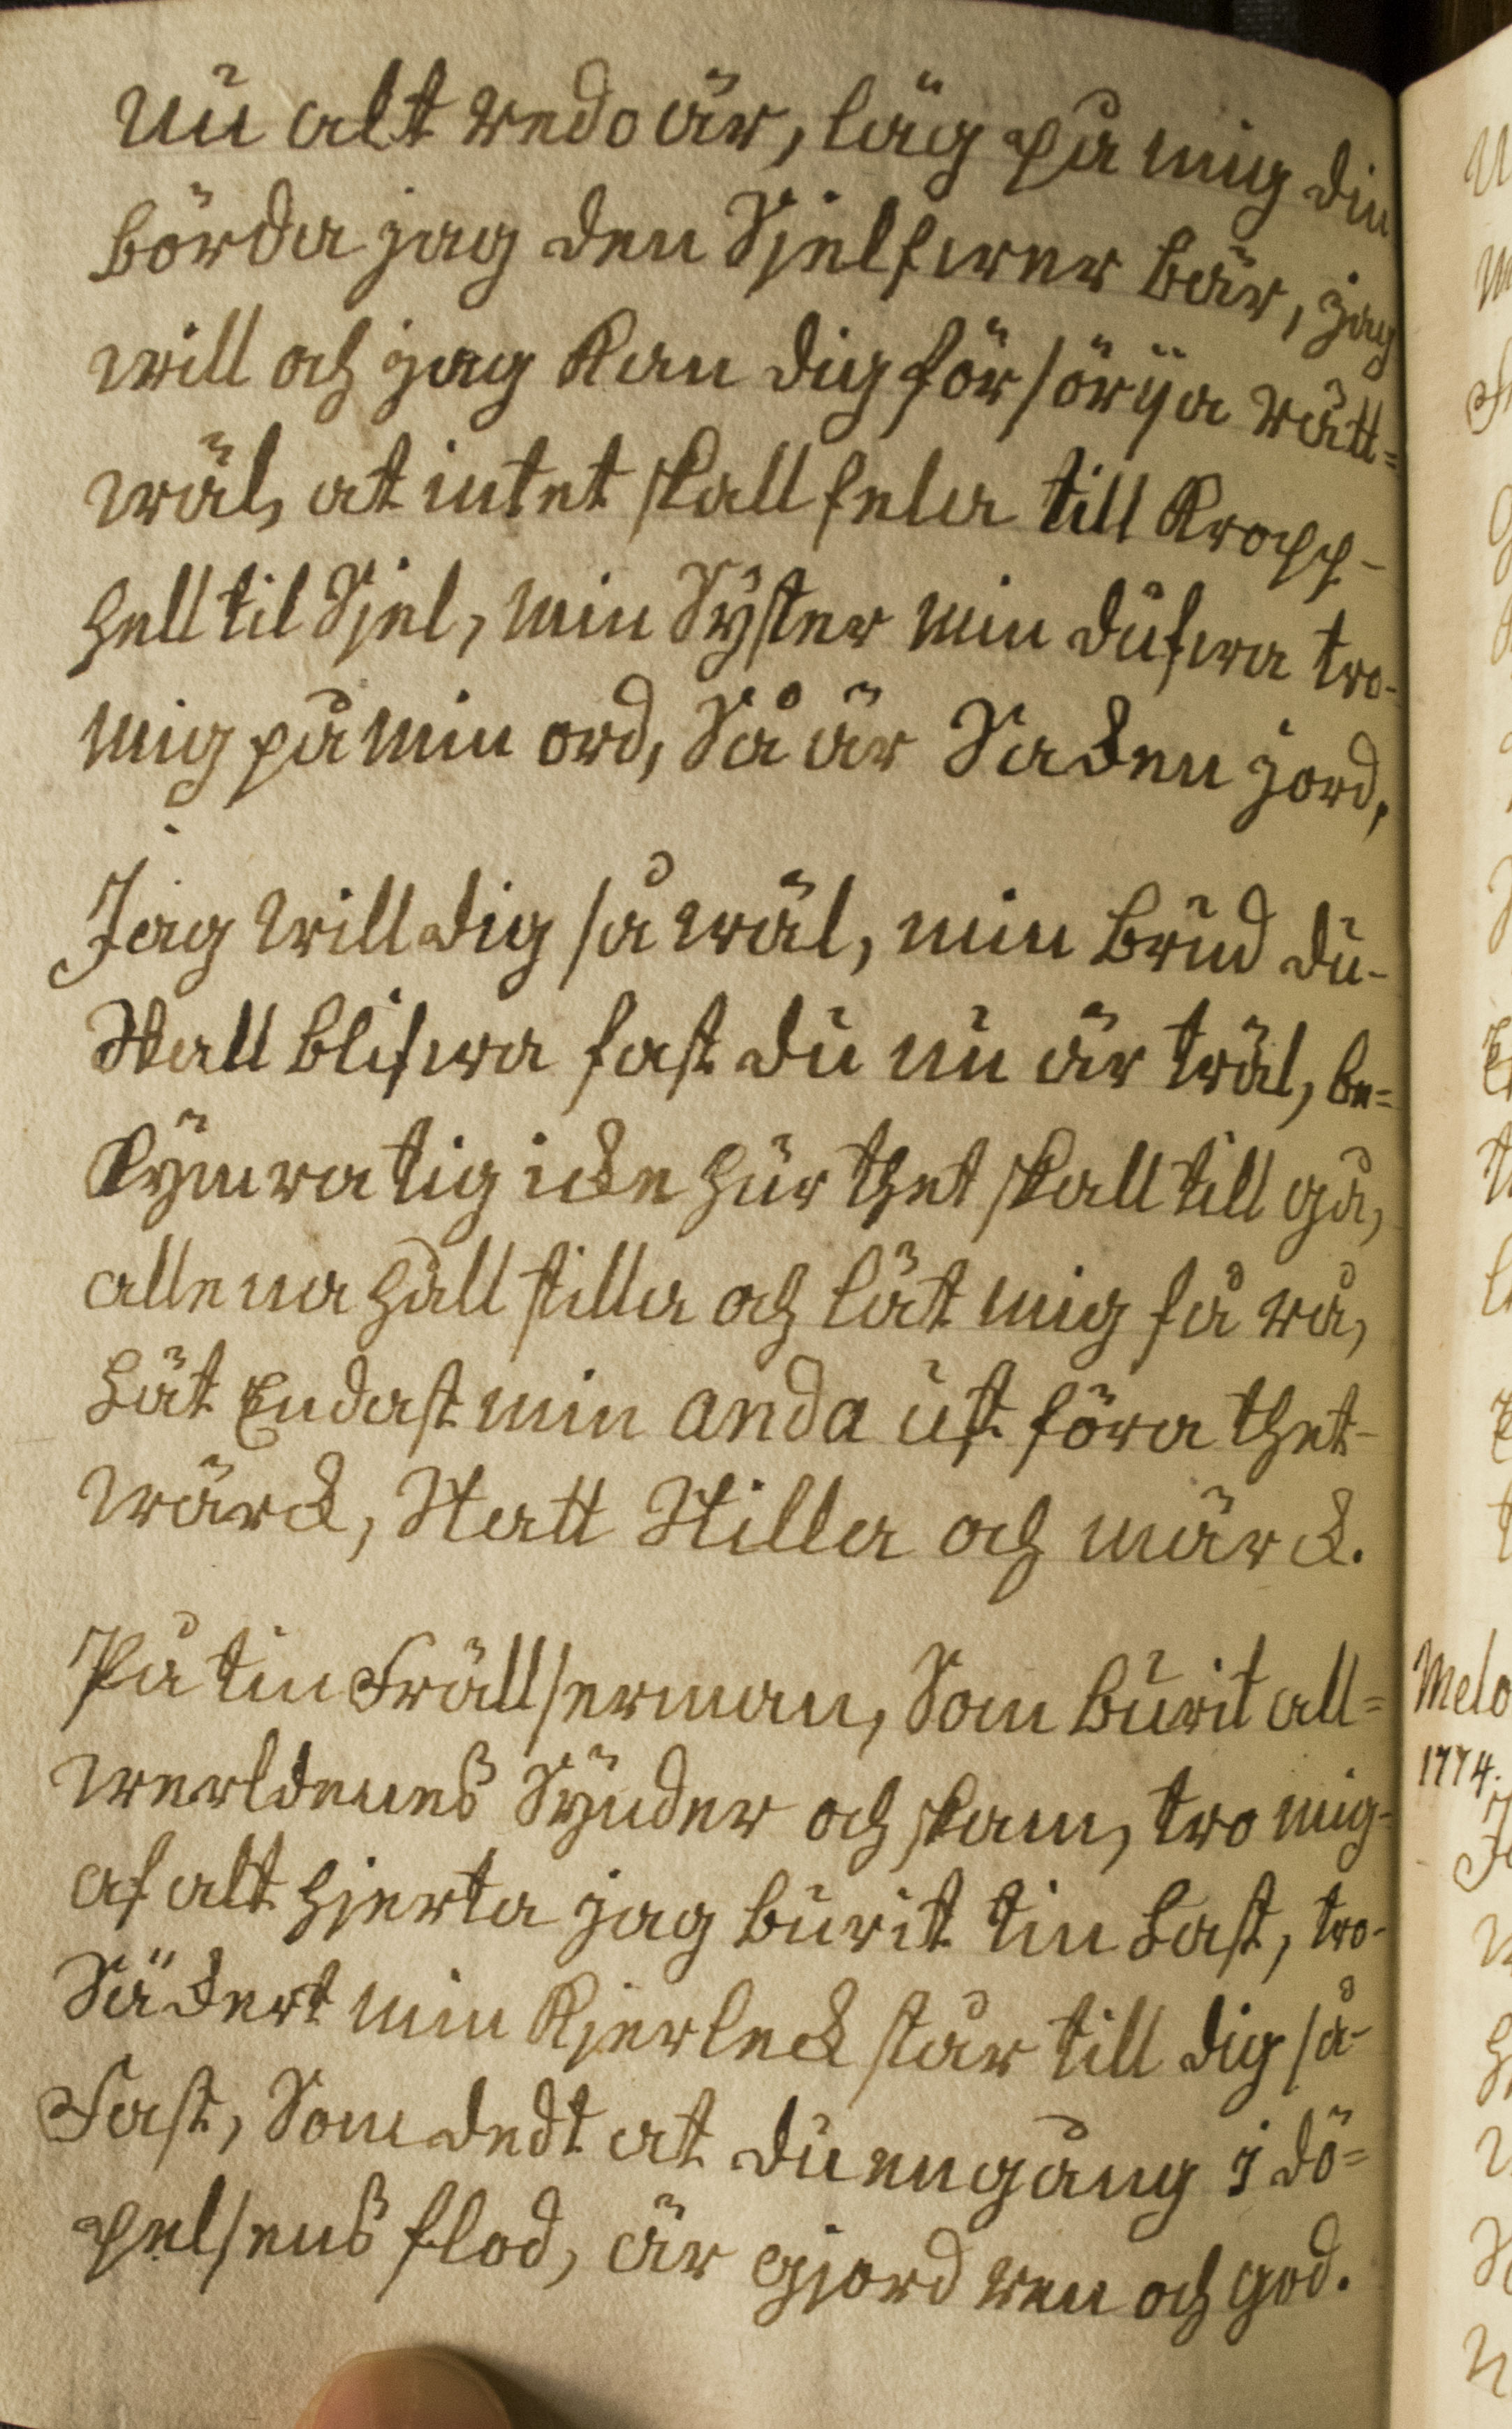 nu alt redo är, läg på mig din
börda jag den Sjelfwer bär, jag
will och jag kan dig försörja rätt=
wäl, at intet skall fela till Kropp-
hell til Sjel, min Syster min dufwa tro-
mig på min ord, Så är Sacken jord,
Jag will dig så wäl, min Brud du-
Skall blifwa fast du nu är träl, be=
kymra tig icke hur thet skall till gå,
allena håll stilla och låt mig få rå,
Låt Endast min anda utföra thet-
wärck, Statt Stilla och märck.
På tin Frällserman, Som burit all=
werldenes Synder och skam, tro mig-
af alt hjerta jag burit tin Last, tro-
Säckert min Kjerleck står till dig så-
Fast, Som dedt at du engång i dö=
pelsens flod, är gjord ren och god.
Melo
1774.